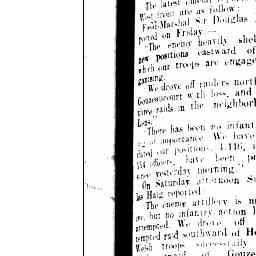 The latest official
West front are as follow:
Field-Marshal Sir Douglas
ported on Friday:—
"The enemy heavily shel
new positions eastward of
which our troops are engage
ganising.
We drove off raiders north
Gouzeaucourt with loss, and
raids in the neighbor
Lens."
"There has been no infant
of importance. We have
our positions. 4,446, i
officers, have been
since yesterday morning."
On Saturday afternoon S
las Haig reported
The enemy artillery is
but no infantry action
attempted. We drove off
tempted raid southward of
Welsh troops successfully
of Gouze